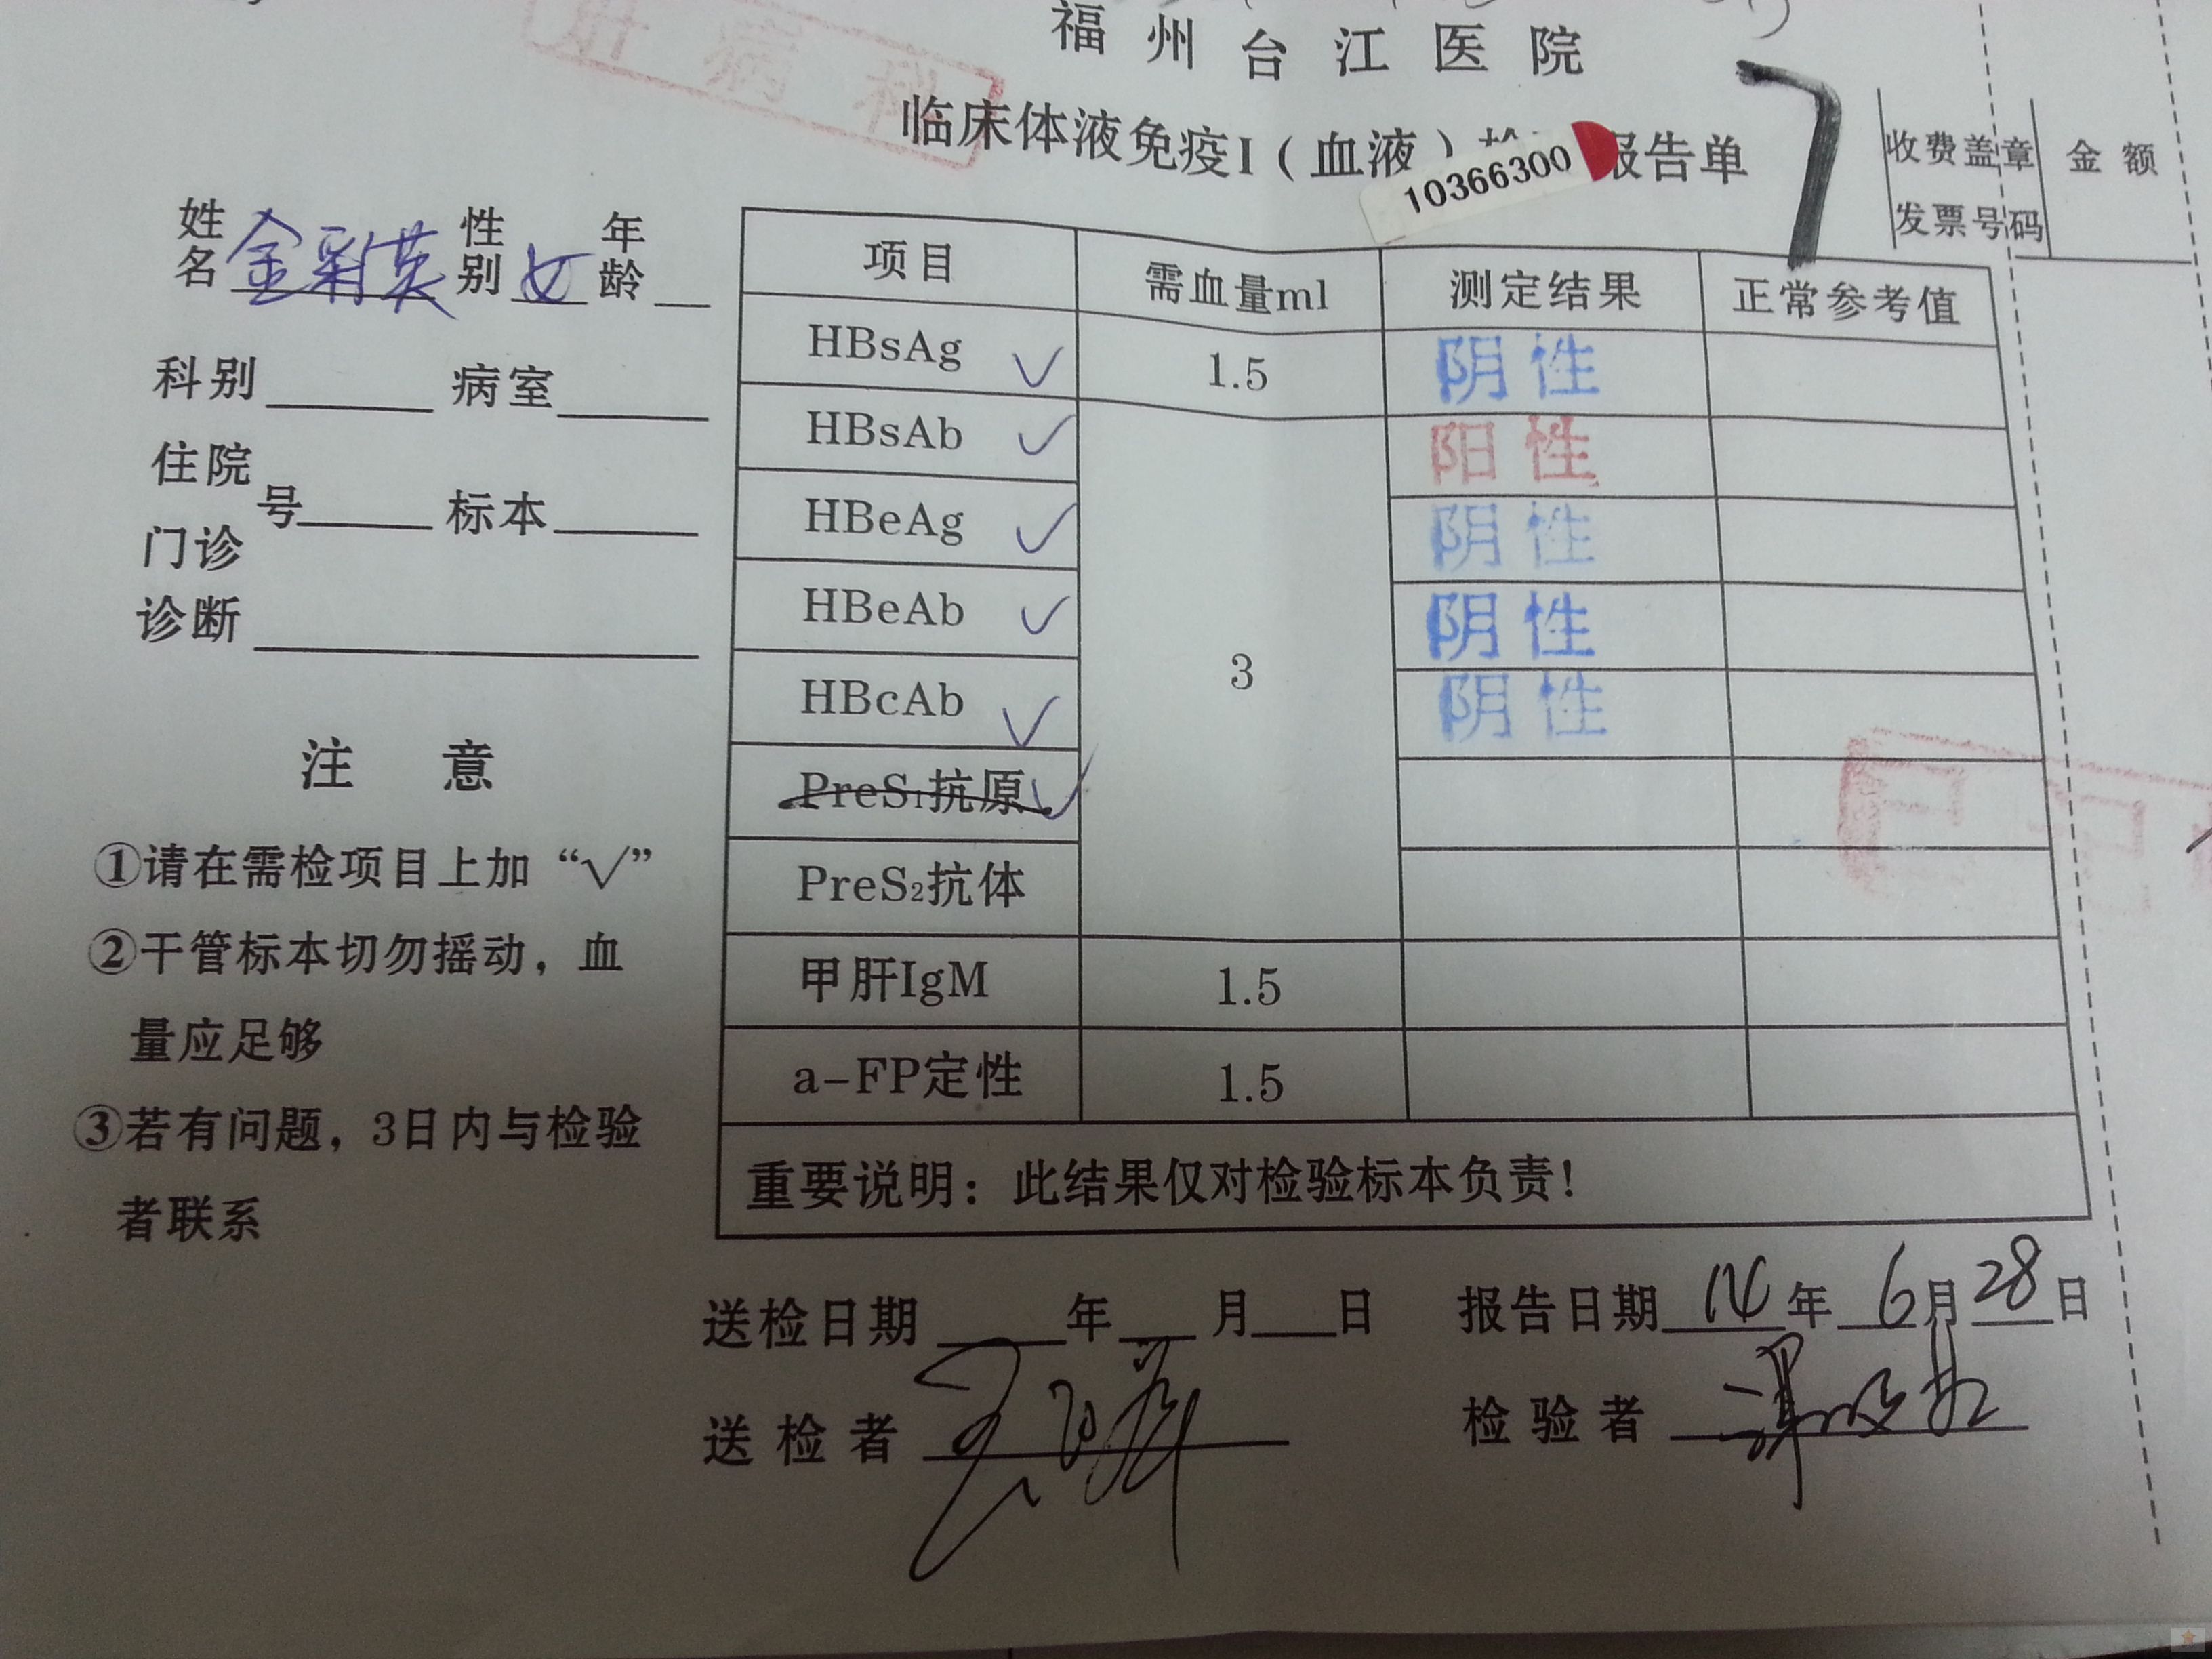 肝病科
福州台江医院
临床体液免疫I（血液）检 报告单
10366300
7
收费盖章 金额
发票号码
姓名 金彩英 性别 女 年龄
科别 病室
住院
门诊 号 标本
诊断
注意
①请在需检项目上加“√”
②干管标本切勿摇动，血
量应足够
③若有问题，3日内与检验
者联系
项目 需血量ml 测定结果 正常参考值
HBsAg √ 1.5 阴性
HBsAb √ 阳性
HBeAg √ 阴性
HBeAb √ 3 阴性
HBcAb √ 阴性
PreS₁抗原 √
PreS₂抗体
甲肝IgM 1.5
a-FP定性 1.5
重要说明：此结果仅对检验标本负责！
送检日期 年 月 日 报告日期 14年 6月 28日
送检者 检验者